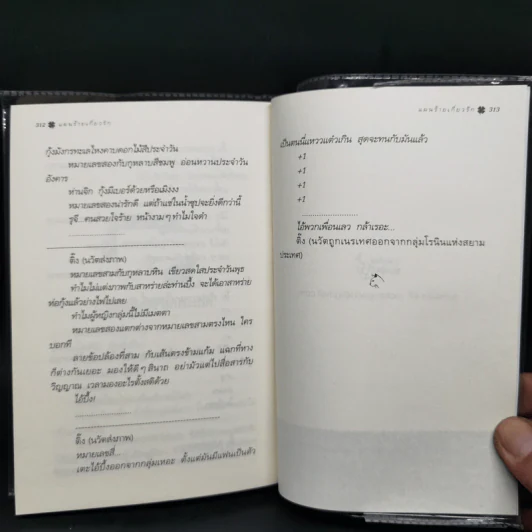 312 แผนร้ายเกี้ยวรัก
กุ้งมังกรทะเลไหงคาบดอกไม้สีประจำวัน
หมายเลขสองกับกุหลาบสีชมพู อ่อนหวานประจำวัน
อังคาร
ท่านจิก กุ้งมีเบอร์ด้วยหรือเมิงงง
หมายเลขสองน่ารักดี แต่ถ้าแช่ในน้ำซุปจะยิ่งดีกว่านี้
รูจี...คนสวยใจร้าย หน้างาม ๆ ทำไมใจดำ
ติ๊ง (นวัตส่งภาพ)
หมายเลขสามกับกุหลาบหิน เขียวสดใสประจำวันพุธ
ทำไมไม่แต่งภาพกับสาหร่ายล่ะท่านบึ้ง จะได้เอาสาหร่าย
ห่อกุ้งแล้วย่างไฟไปเลย
ทำไมผู้หญิงกลุ่มนี้ไม่มีเมตตา
หมายเลขสองแตกต่างจากหมายเลขสามตรงไหน ใคร
บอกที
ลายข้อปล้องที่สาม กับเส้นตรงข้ามแก้ม แฉกที่หาง
ก็ต่างกันเยอะ มองให้ดี ๆ สินาถ อย่ามัวแต่ไปสื่อสารกับ
วิญญาณ เวลามองอะไรตั้งสติด้วย
ไอ้บึ้ง!
ติ๊ง (นวัตส่งภาพ)
หมายเลขสี่...
เตะไอ้บึ้งออกจากกลุ่มเหอะ ตั้งแต่มันมีแฟนเป็นตัว
แผนร้ายเกี้ยวรัก 313
เป็นตนนี่แหววแต๋วเกิน สุดจะทนกับมันแล้ว
+1
+1
+1
+1
ไอ้พวกเพื่อนเลว กล้าเรอะ...
ติ๊ง (นวัตถูกเนรเทศออกจากกลุ่มโรนินแห่งสยาม
ประเทศ)